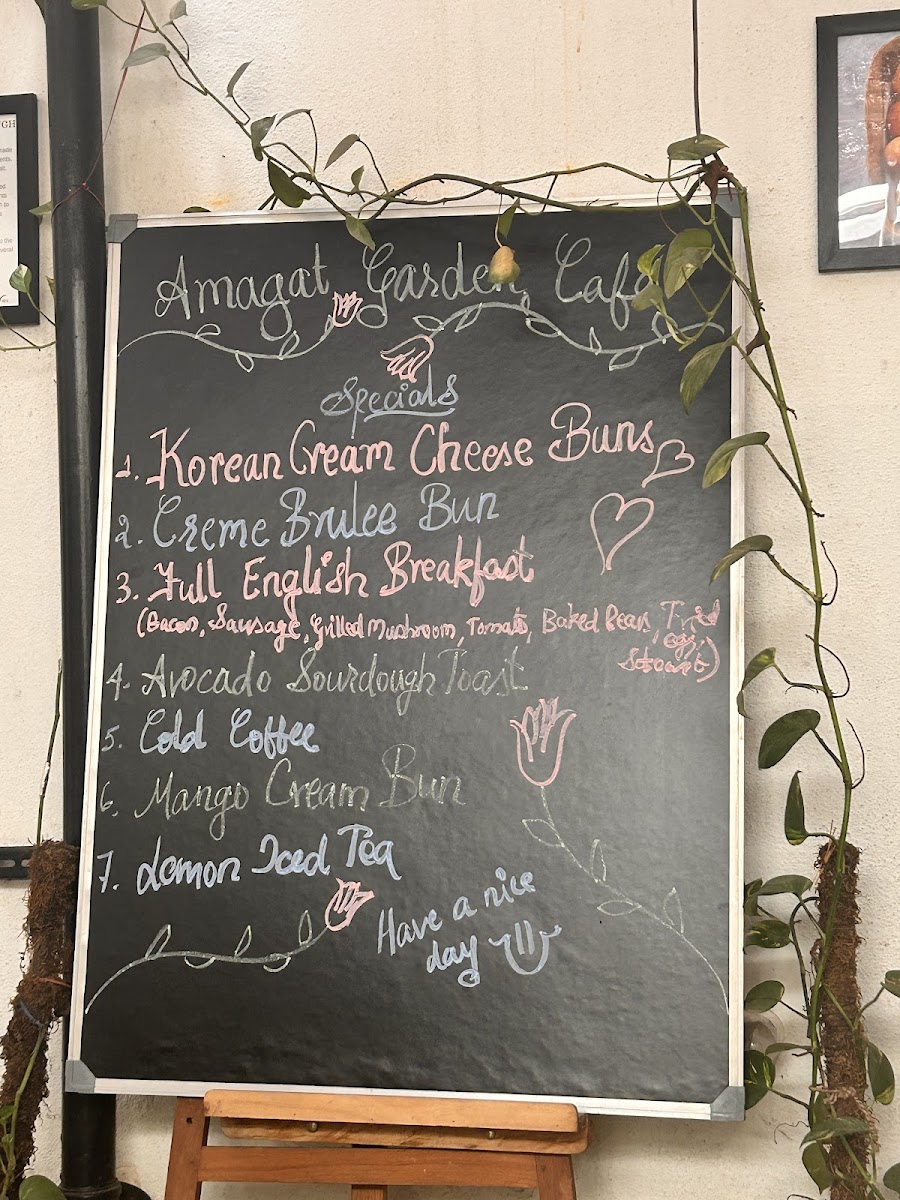 Amagat Garden Cafe
Specials
1. Korean Cream Cheese Buns
2. Creme Brulee Bun
3. Full English Breakfast
(Bacon, Sausage, Grilled Mushroom, Tomato, Baked Bean, Fried
egg,
4. Avocado Sourdough Toast
5. Cold Coffee
6. Mango Cream Bun
7. Lemon Iced Tea
Have a nice
day